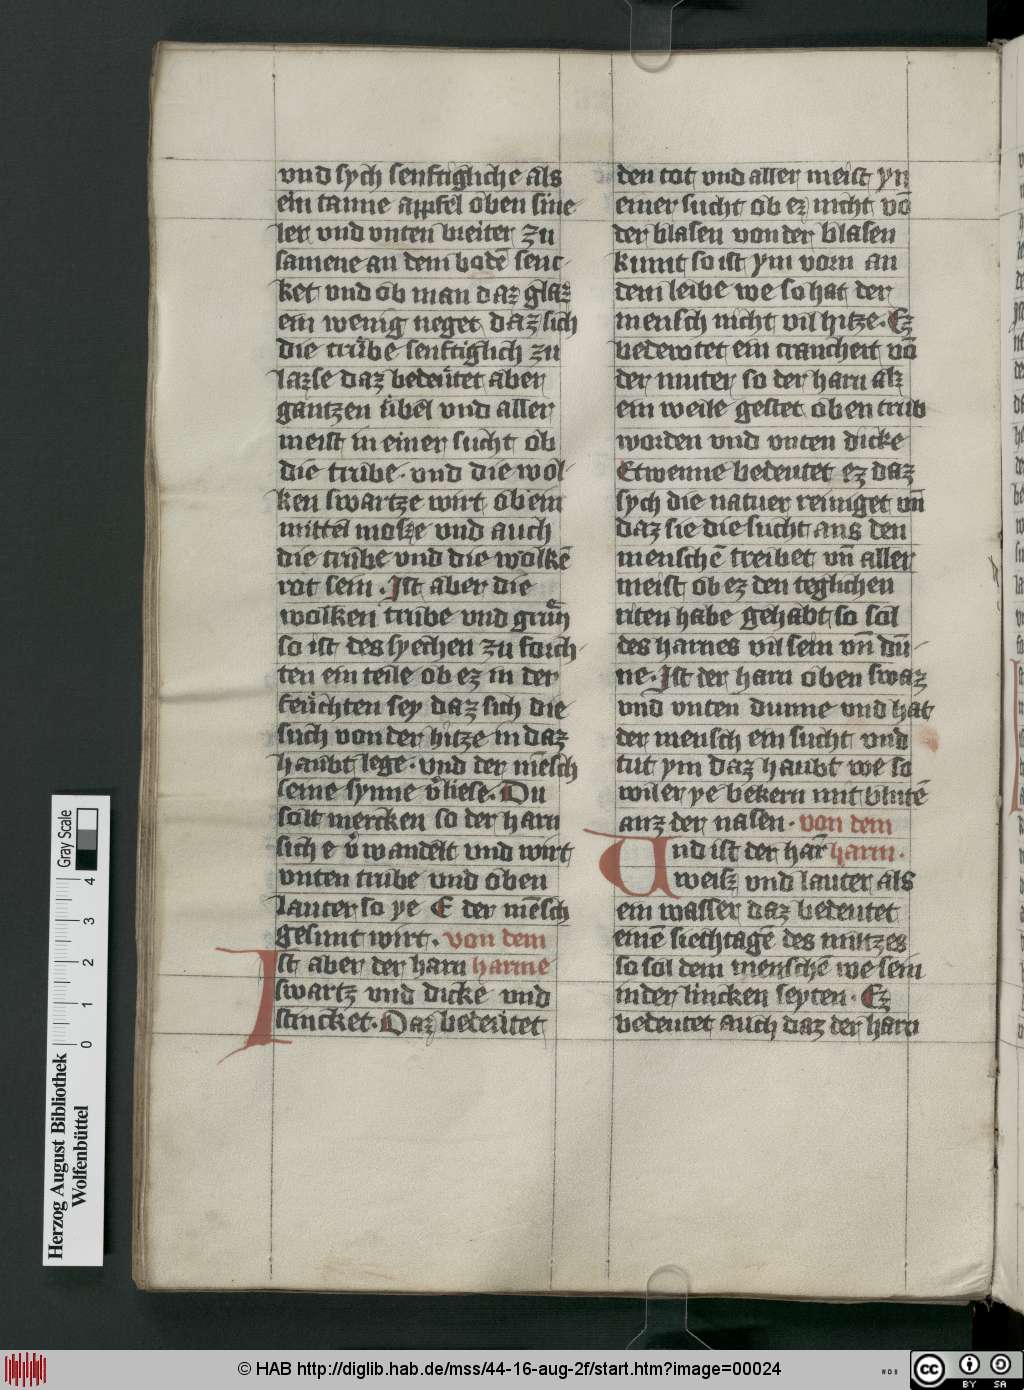 vnd sych senftigliche als
ein tanne appfel oben sine
ler vnd vnten breiter zu
samene an dem bodē senc-
ket vnd ob man daz glaz
ein wenig neget daz sich
die trübe senftiglich zu
lazse daz bedeütet aber
gantzen übel vnd aller
meist in einer sucht ob
die trübe. vnd die wol-
ken swartze wirt ob ein
mittel mosze vnd auch
die trübe vnd die wolkē
rot sein. Ist aber die
wolken trübe vnd grün
so ist des syechen zu forch-
ten ein teile ob ez in der
feüchten sey daz sich die
such von der hitze in daz
haubt lege. vnd der mēsch
seine synne v̓liese. Du
solt mercken so der harn
sich e v̓wandelt vnd wirt
vnten trübe vnd oben
lauter so ye E der mēsch
gesunt wirt. von dem
Ist aber der harn harme
swartz vnd dicke vnd
stincket. Daz bedeütet
den tot vnd aller meist yn
einer sucht ob ez nicht vō
der blasen von der blasen
kumt so ist ym vorn an
dem leibe we so hat der
mensch nicht vil hitze. Ez
bedewtet ein crancheit vō
der muter so der harn alz
ein weile gestet oben trüb
worden vnd vnten dicke
Etwenne bedeutet ez daz
sych die natuer reiniget vn̄
daz sie die sucht aus den
menschē treibet vn̄ aller
meist ob ez den teglichen
riten habe gehabt so sol
des harnes vil sein vn̄ dū-
ne. Ist der harn oben swaz
vnd vnten dunne vnd hat
der mensch ein sucht vnd
tut ym daz haubt we so
wil er ye bekern mit blutē
auz der nasen. von dem
Und ist der har̄ harm.
weisz vnd lauter als
ein wasser daz bedeutet
einē siechtagē des miltzes
so sol dem menschē we sein
in der lincken seyten. Ez
bedeutet auch daz der harn
Herzog August Bibliothek
Wolfenbüttel
Gray Scale
0 1 2 3 4
© HAB http://diglib.hab.de/mss/44-16-aug-2f/start.htm?image=00024
WDB
cc BY SA